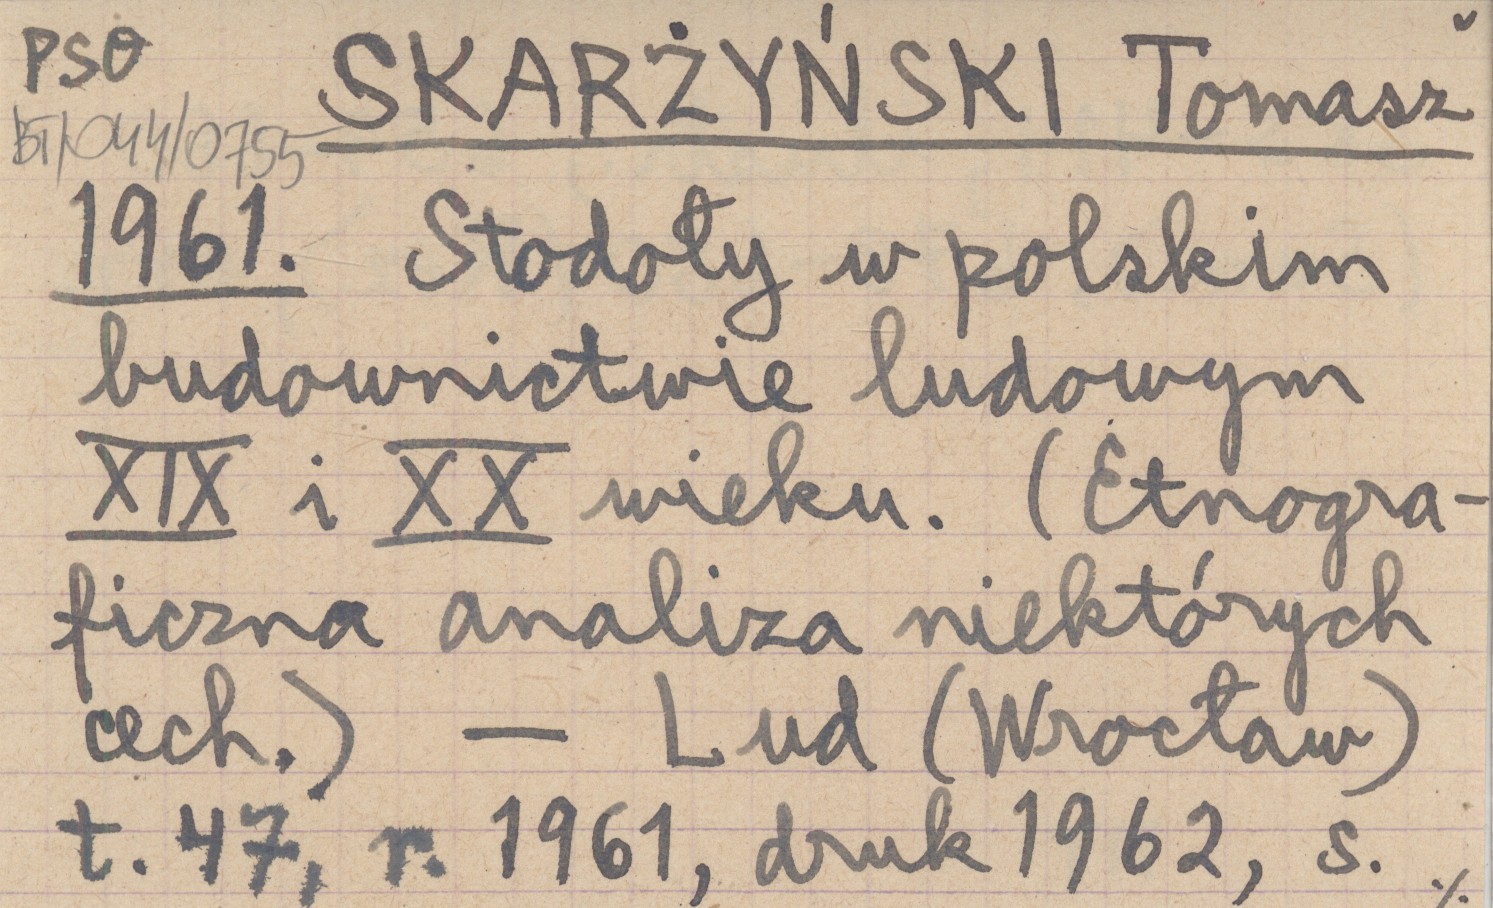 PSO SKARŻYŃSKI Tomasz
BT/044/0755
1961. Stodoły w polskim
budownictwie ludowym
XIX i XX wieku. (Etnogra-
ficzna analiza niektórych
cech.) — Lud (Wrocław)
t. 47, r. 1961, druk 1962, s.
./.